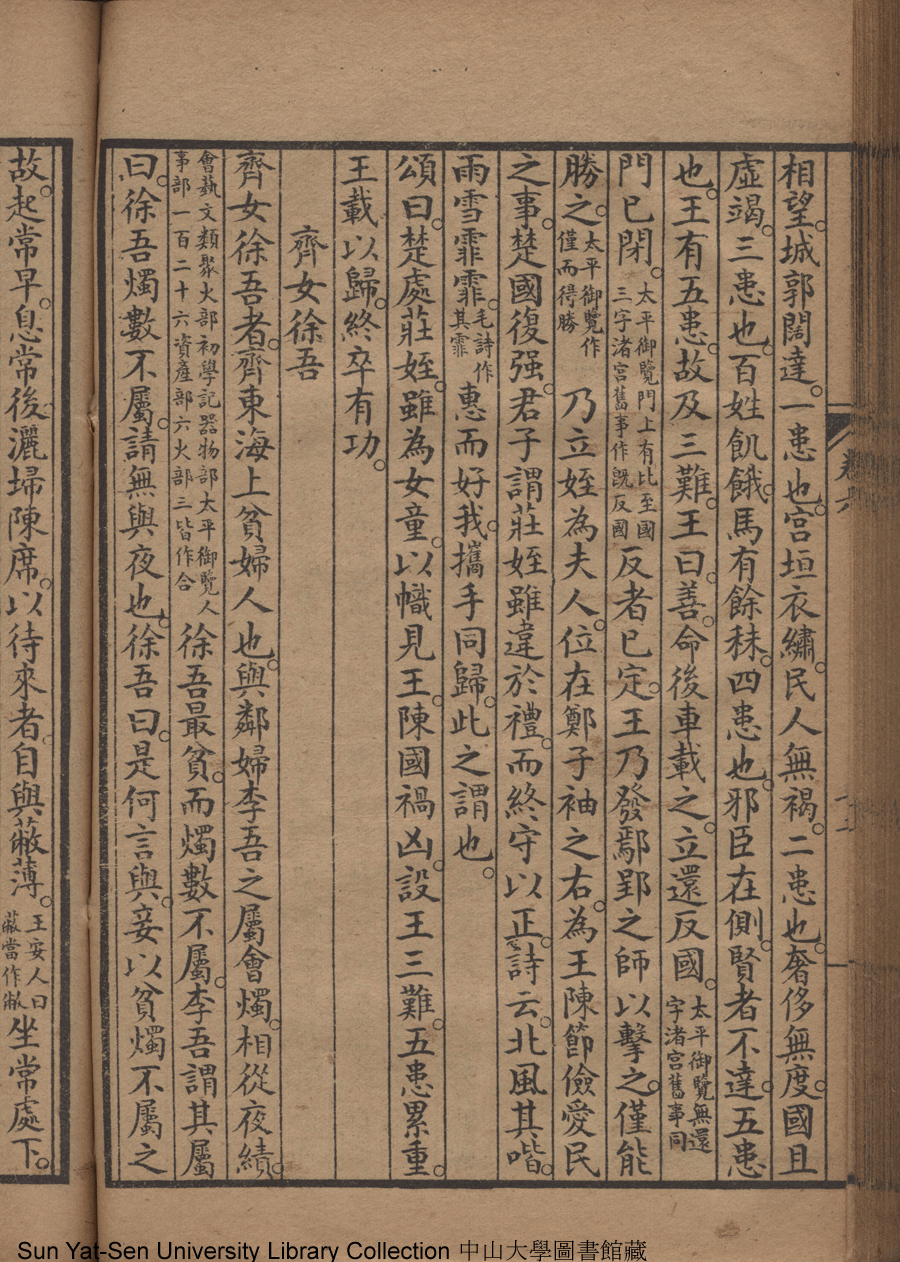 相望。城郭闊達。一患也。宮垣衣繡。民人無褐。二患也。奢侈無度。國且
虛竭。三患也。百姓飢餓。馬有餘秣。四患也。邪臣在側。賢者不達。五患
也。王有五患。故及三難。王曰。善。命後車載之。立還反國。太平御覽無還字渚宮舊事同
門已閉。太平御覽門上有比至國三字渚宮舊事作旣反國反者已定。王乃發鄢郢之師以擊之。僅能
勝之。太平御覽作僅而得勝乃立姪為夫人。位在鄭子袖之右。為王陳節儉愛民
之事。楚國復强。君子謂莊姪雖違於禮。而終守以正。詩云。北風其喈。
雨雪霏霏。毛詩作其霏惠而好我。攜手同歸。此之謂也。
頌曰。楚處莊姪。雖為女童。以幟見王。陳國禍凶。設王三難。五患累重。
王載以歸。終卒有功。
齊女徐吾
齊女徐吾者。齊東海上貧婦人也。與鄰婦李吾之屬會燭。相從夜績。
會藝文類聚火部初學記器物部太平御覽人事部一百二十六資產部六火部三皆作合徐吾最貧。而燭數不屬。李吾謂其屬
曰。徐吾燭數不屬。請無與夜也。徐吾曰。是何言與。妾以貧燭不屬之
故。起常早。息常後。灑埽陳席。以待來者。自與蔽薄。王安人曰蔽當作敝坐常處下。
卷六
Sun Yat-Sen University Library Collection 中山大學圖書館藏